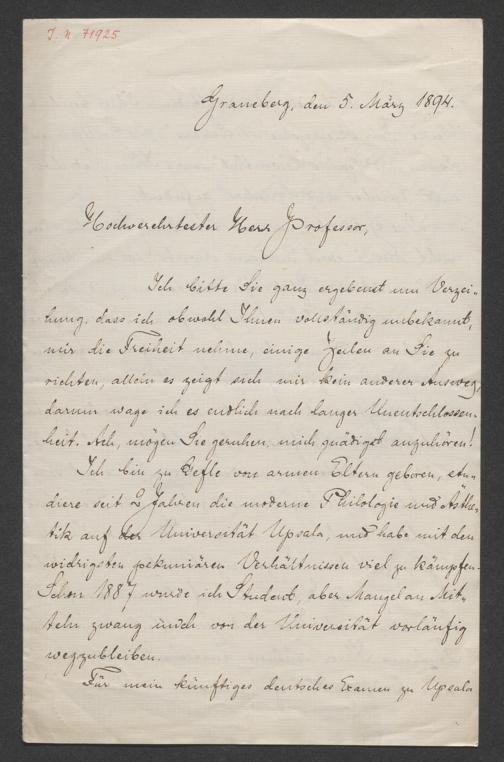 I. N. 71925
Graneberg, den 5. März 1894.
Hochverehrtester Herr Professor,
Ich bitte Sie ganz ergebenst um Verzei-
hung, dass ich obwohl Ihnen vollständig unbekannt,
mir die Freiheit nehme, einige Zeilen an Sie zu
richten, allein es zeigt sich mir kein anderer Ausweg,
darum wage ich es endlich nach langer Unentschlossen-
heit. Ach, mögen Sie geruhen, mich gnädigst anzuhören!
Ich bin zu Gefle von armen Eltern geboren, stu-
diere seit 2 Jahren die moderne Philologie und Ästhe-
tik auf der Universität Upsala, und habe mit den
widrigsten pekuniären Verhältnissen viel zu kämpfen.
Schon 1887 wurde ich Student, aber Mangel an Mit-
teln zwang mich von der Universität vorläufig
wegzubleiben.
Für mein künftiges deutsches Examen zu Upsala